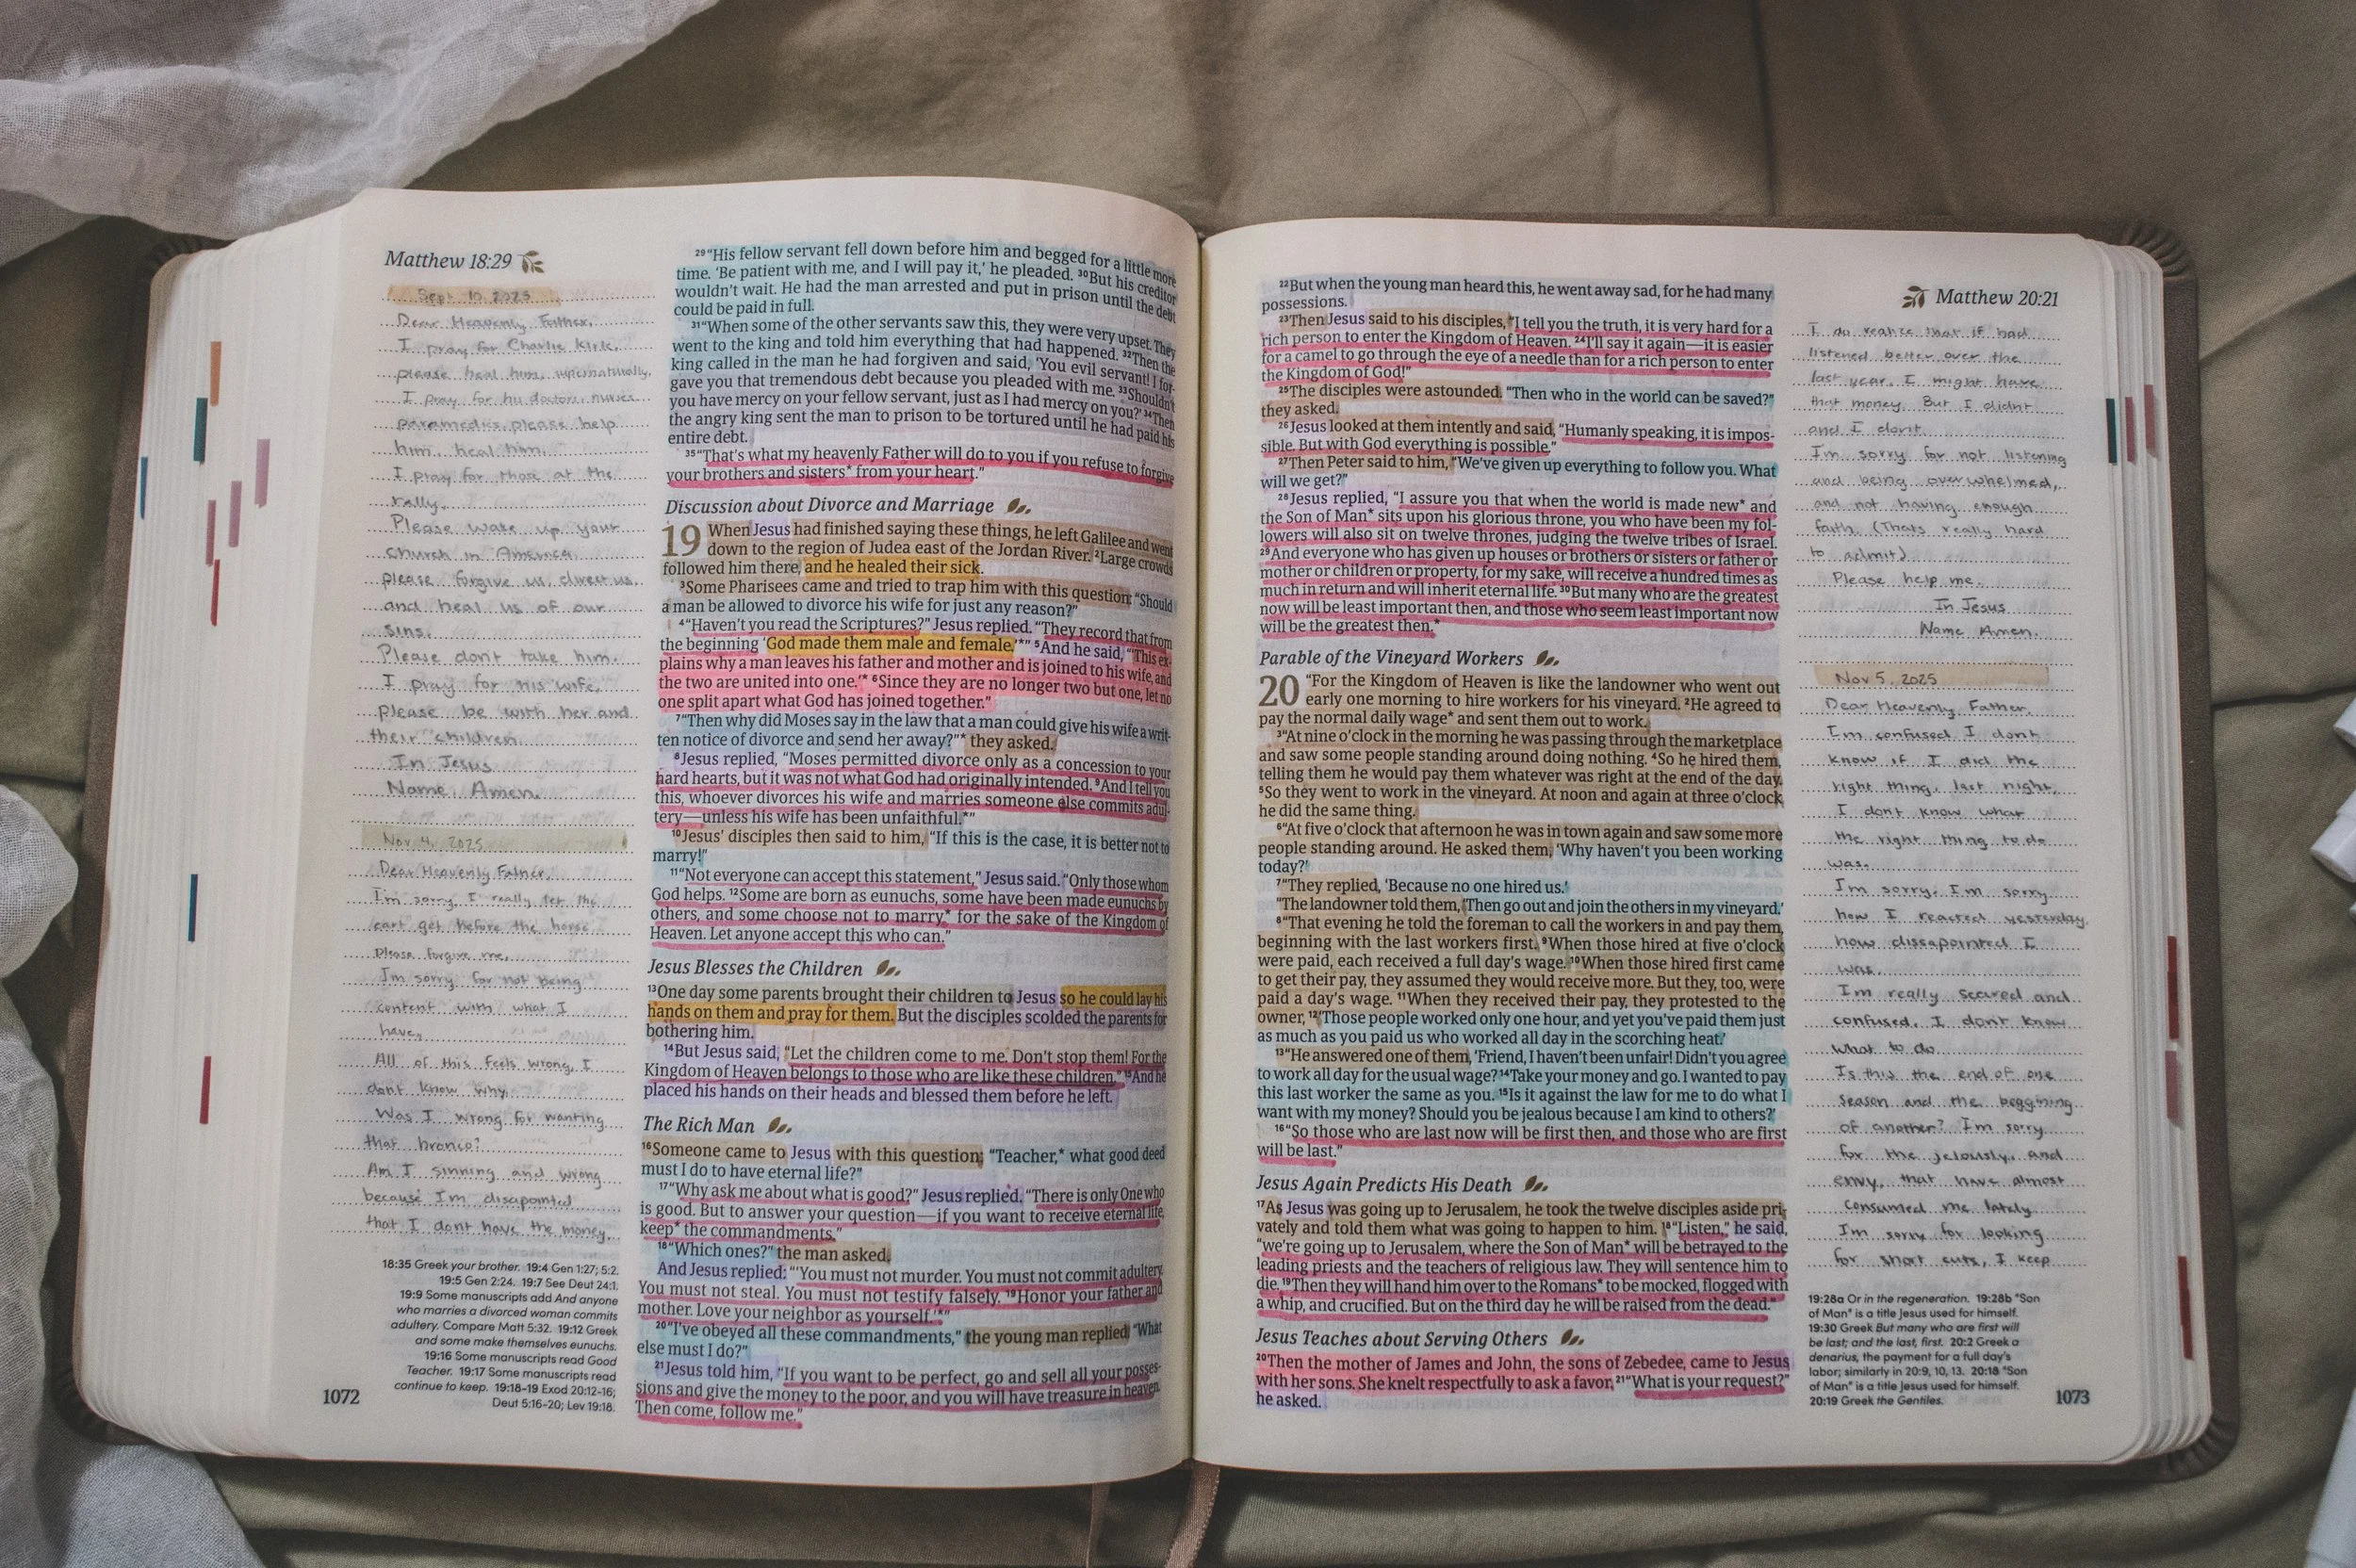 Matthew 18:29
Sept 10, 2025
Dear Heavenly Father,
I pray for Charlie Kirk,
please heal him, supernaturally.
I pray for his doctors, nurses
paramedics, please help
him, heal him.
I pray for those at the
rally.
Please wake up your
church in America,
please forgive us, direct us,
and heal us of our
sins.
Please don't take him.
I pray for his wife,
please be with her and
their children
In Jesus
Name Amen.
Nov 4, 2025
Dear Heavenly Father,
I'm sorry, I really let the
cart get before the horse.
Please forgive me,
I'm sorry for not being
content with what I
have,
All of this feels wrong, I
dont know why.
Was I wrong for wanting
that bronco?
Am I sinning and wrong
because I'm disapointed
that I dont have the money.
18:35 Greek your brother. 19:4 Gen 1:27; 5:2.
19:5 Gen 2:24. 19:7 See Deut 24:1.
19:9 Some manuscripts add And anyone
who marries a divorced woman commits
adultery. Compare Matt 5:32. 19:12 Greek
and some make themselves eunuchs.
19:16 Some manuscripts read Good
Teacher. 19:17 Some manuscripts read
continue to keep. 19:18-19 Exod 20:12-16;
Deut 5:16-20; Lev 19:18.
1072
29“His fellow servant fell down before him and begged for a little more
time. ‘Be patient with me, and I will pay it,’ he pleaded. 30But his creditor
wouldn’t wait. He had the man arrested and put in prison until the debt
could be paid in full.
31“When some of the other servants saw this, they were very upset. They
went to the king and told him everything that had happened. 32Then the
king called in the man he had forgiven and said, ‘You evil servant! I for-
gave you that tremendous debt because you pleaded with me. 33Shouldn’t
you have mercy on your fellow servant, just as I had mercy on you?’ 34Then
the angry king sent the man to prison to be tortured until he had paid his
entire debt.
35“That’s what my heavenly Father will do to you if you refuse to forgive
your brothers and sisters* from your heart.”
Discussion about Divorce and Marriage
19 When Jesus had finished saying these things, he left Galilee and went
down to the region of Judea east of the Jordan River. 2Large crowds
followed him there, and he healed their sick.
3Some Pharisees came and tried to trap him with this question: “Should
a man be allowed to divorce his wife for just any reason?”
4“Haven’t you read the Scriptures?” Jesus replied. “They record that from
the beginning ‘God made them male and female.’*” 5And he said, “‘This ex-
plains why a man leaves his father and mother and is joined to his wife, and
the two are united into one.’* 6Since they are no longer two but one, let no
one split apart what God has joined together.”
7“Then why did Moses say in the law that a man could give his wife a writ-
ten notice of divorce and send her away?”* they asked.
8Jesus replied, “Moses permitted divorce only as a concession to your
hard hearts, but it was not what God had originally intended. 9And I tell you
this, whoever divorces his wife and marries someone else commits adul-
tery—unless his wife has been unfaithful.*”
10Jesus’ disciples then said to him, “If this is the case, it is better not to
marry!”
11“Not everyone can accept this statement,” Jesus said. “Only those whom
God helps. 12Some are born as eunuchs, some have been made eunuchs by
others, and some choose not to marry* for the sake of the Kingdom of
Heaven. Let anyone accept this who can.”
Jesus Blesses the Children
13One day some parents brought their children to Jesus so he could lay his
hands on them and pray for them. But the disciples scolded the parents for
bothering him.
14But Jesus said, “Let the children come to me. Don’t stop them! For the
Kingdom of Heaven belongs to those who are like these children.” 15And he
placed his hands on their heads and blessed them before he left.
The Rich Man
16Someone came to Jesus with this question: “Teacher,* what good deed
must I do to have eternal life?”
17“Why ask me about what is good?” Jesus replied. “There is only One who
is good. But to answer your question—if you want to receive eternal life,
keep* the commandments.”
18“Which ones?” the man asked.
And Jesus replied: “‘You must not murder. You must not commit adultery.
You must not steal. You must not testify falsely. 19Honor your father and
mother. Love your neighbor as yourself.’*”
20“I’ve obeyed all these commandments,” the young man replied. “What
else must I do?”
21Jesus told him, “If you want to be perfect, go and sell all your posses-
sions and give the money to the poor, and you will have treasure in heaven.
Then come, follow me.”
22But when the young man heard this, he went away sad, for he had many
possessions.
23Then Jesus said to his disciples, “I tell you the truth, it is very hard for a
rich person to enter the Kingdom of Heaven. 24I’ll say it again—it is easier
for a camel to go through the eye of a needle than for a rich person to enter
the Kingdom of God!”
25The disciples were astounded. “Then who in the world can be saved?”
they asked.
26Jesus looked at them intently and said, “Humanly speaking, it is impos-
sible. But with God everything is possible.”
27Then Peter said to him, “We’ve given up everything to follow you. What
will we get?”
28Jesus replied, “I assure you that when the world is made new* and
the Son of Man* sits upon his glorious throne, you who have been my fol-
lowers will also sit on twelve thrones, judging the twelve tribes of Israel.
29And everyone who has given up houses or brothers or sisters or father or
mother or children or property, for my sake, will receive a hundred times as
much in return and will inherit eternal life. 30But many who are the greatest
now will be least important then, and those who seem least important now
will be the greatest then.*
Parable of the Vineyard Workers
20 “For the Kingdom of Heaven is like the landowner who went out
early one morning to hire workers for his vineyard. 2He agreed to
pay the normal daily wage* and sent them out to work.
3“At nine o’clock in the morning he was passing through the marketplace
and saw some people standing around doing nothing. 4So he hired them,
telling them he would pay them whatever was right at the end of the day.
5So they went to work in the vineyard. At noon and again at three o’clock
he did the same thing.
6“At five o’clock that afternoon he was in town again and saw some more
people standing around. He asked them, ‘Why haven’t you been working
today?’
7“They replied, ‘Because no one hired us.’
“The landowner told them, ‘Then go out and join the others in my vineyard.’
8“That evening he told the foreman to call the workers in and pay them,
beginning with the last workers first. 9When those hired at five o’clock
were paid, each received a full day’s wage. 10When those hired first came
to get their pay, they assumed they would receive more. But they, too, were
paid a day’s wage. 11When they received their pay, they protested to the
owner, 12‘Those people worked only one hour, and yet you’ve paid them just
as much as you paid us who worked all day in the scorching heat.’
13“He answered one of them, ‘Friend, I haven’t been unfair! Didn’t you agree
to work all day for the usual wage? 14Take your money and go. I wanted to pay
this last worker the same as you. 15Is it against the law for me to do what I
want with my money? Should you be jealous because I am kind to others?’
16“So those who are last now will be first then, and those who are first
will be last.”
Jesus Again Predicts His Death
17As Jesus was going up to Jerusalem, he took the twelve disciples aside pri-
vately and told them what was going to happen to him. 18“Listen,” he said,
“we’re going up to Jerusalem, where the Son of Man* will be betrayed to the
leading priests and the teachers of religious law. They will sentence him to
die. 19Then they will hand him over to the Romans* to be mocked, flogged with
a whip, and crucified. But on the third day he will be raised from the dead.”
Jesus Teaches about Serving Others
20Then the mother of James and John, the sons of Zebedee, came to Jesus
with her sons. She knelt respectfully to ask a favor. 21“What is your request?”
he asked.
Matthew 20:21
I do realize that if had
listened better over the
last year, I might have
that money. But I didnt
and I dont.
I'm sorry for not listening
and being overwhelmed,
and not having enough
faith. (Thats really hard
to admit)
Please help me.
In Jesus
Name Amen.
Nov 5, 2025
Dear Heavenly Father,
I'm confused I dont
know if I did the
right thing last night,
I dont know what
the right thing to do
was.
I'm sorry. I'm sorry
how I reacted yesterday,
how dissapointed I
was.
I'm really scared and
confused. I dont know
what to do
Is this the end of one
season and the beggining
of another? I'm sorry
for the jelously, and
envy, that have almost
consumed me lately
I'm sorry for looking
for short cuts, I keep
19:28a Or in the regeneration. 19:28b “Son
of Man” is a title Jesus used for himself.
19:30 Greek But many who are first will
be last; and the last, first. 20:2 Greek a
denarius, the payment for a full day’s
labor; similarly in 20:9, 10, 13. 20:18 “Son
of Man” is a title Jesus used for himself.
20:19 Greek the Gentiles.
1073